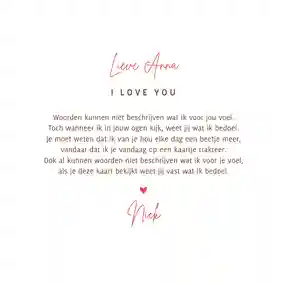 Lieve Anna
I LOVE YOU
Woorden kunnen niet beschrijven wat ik voor jou voel.
Toch wanneer ik in jouw ogen kijk, weet jij wat ik bedoel.
Je moet weten dat ik van je hou elke dag een beetje meer,
vandaar dat ik je vandaag op een kaartje trakteer.
Ook al kunnen woorden niet beschrijven wat ik voor je voel,
als je deze kaart bekijkt weet jij vast wat ik bedoel.
Nick